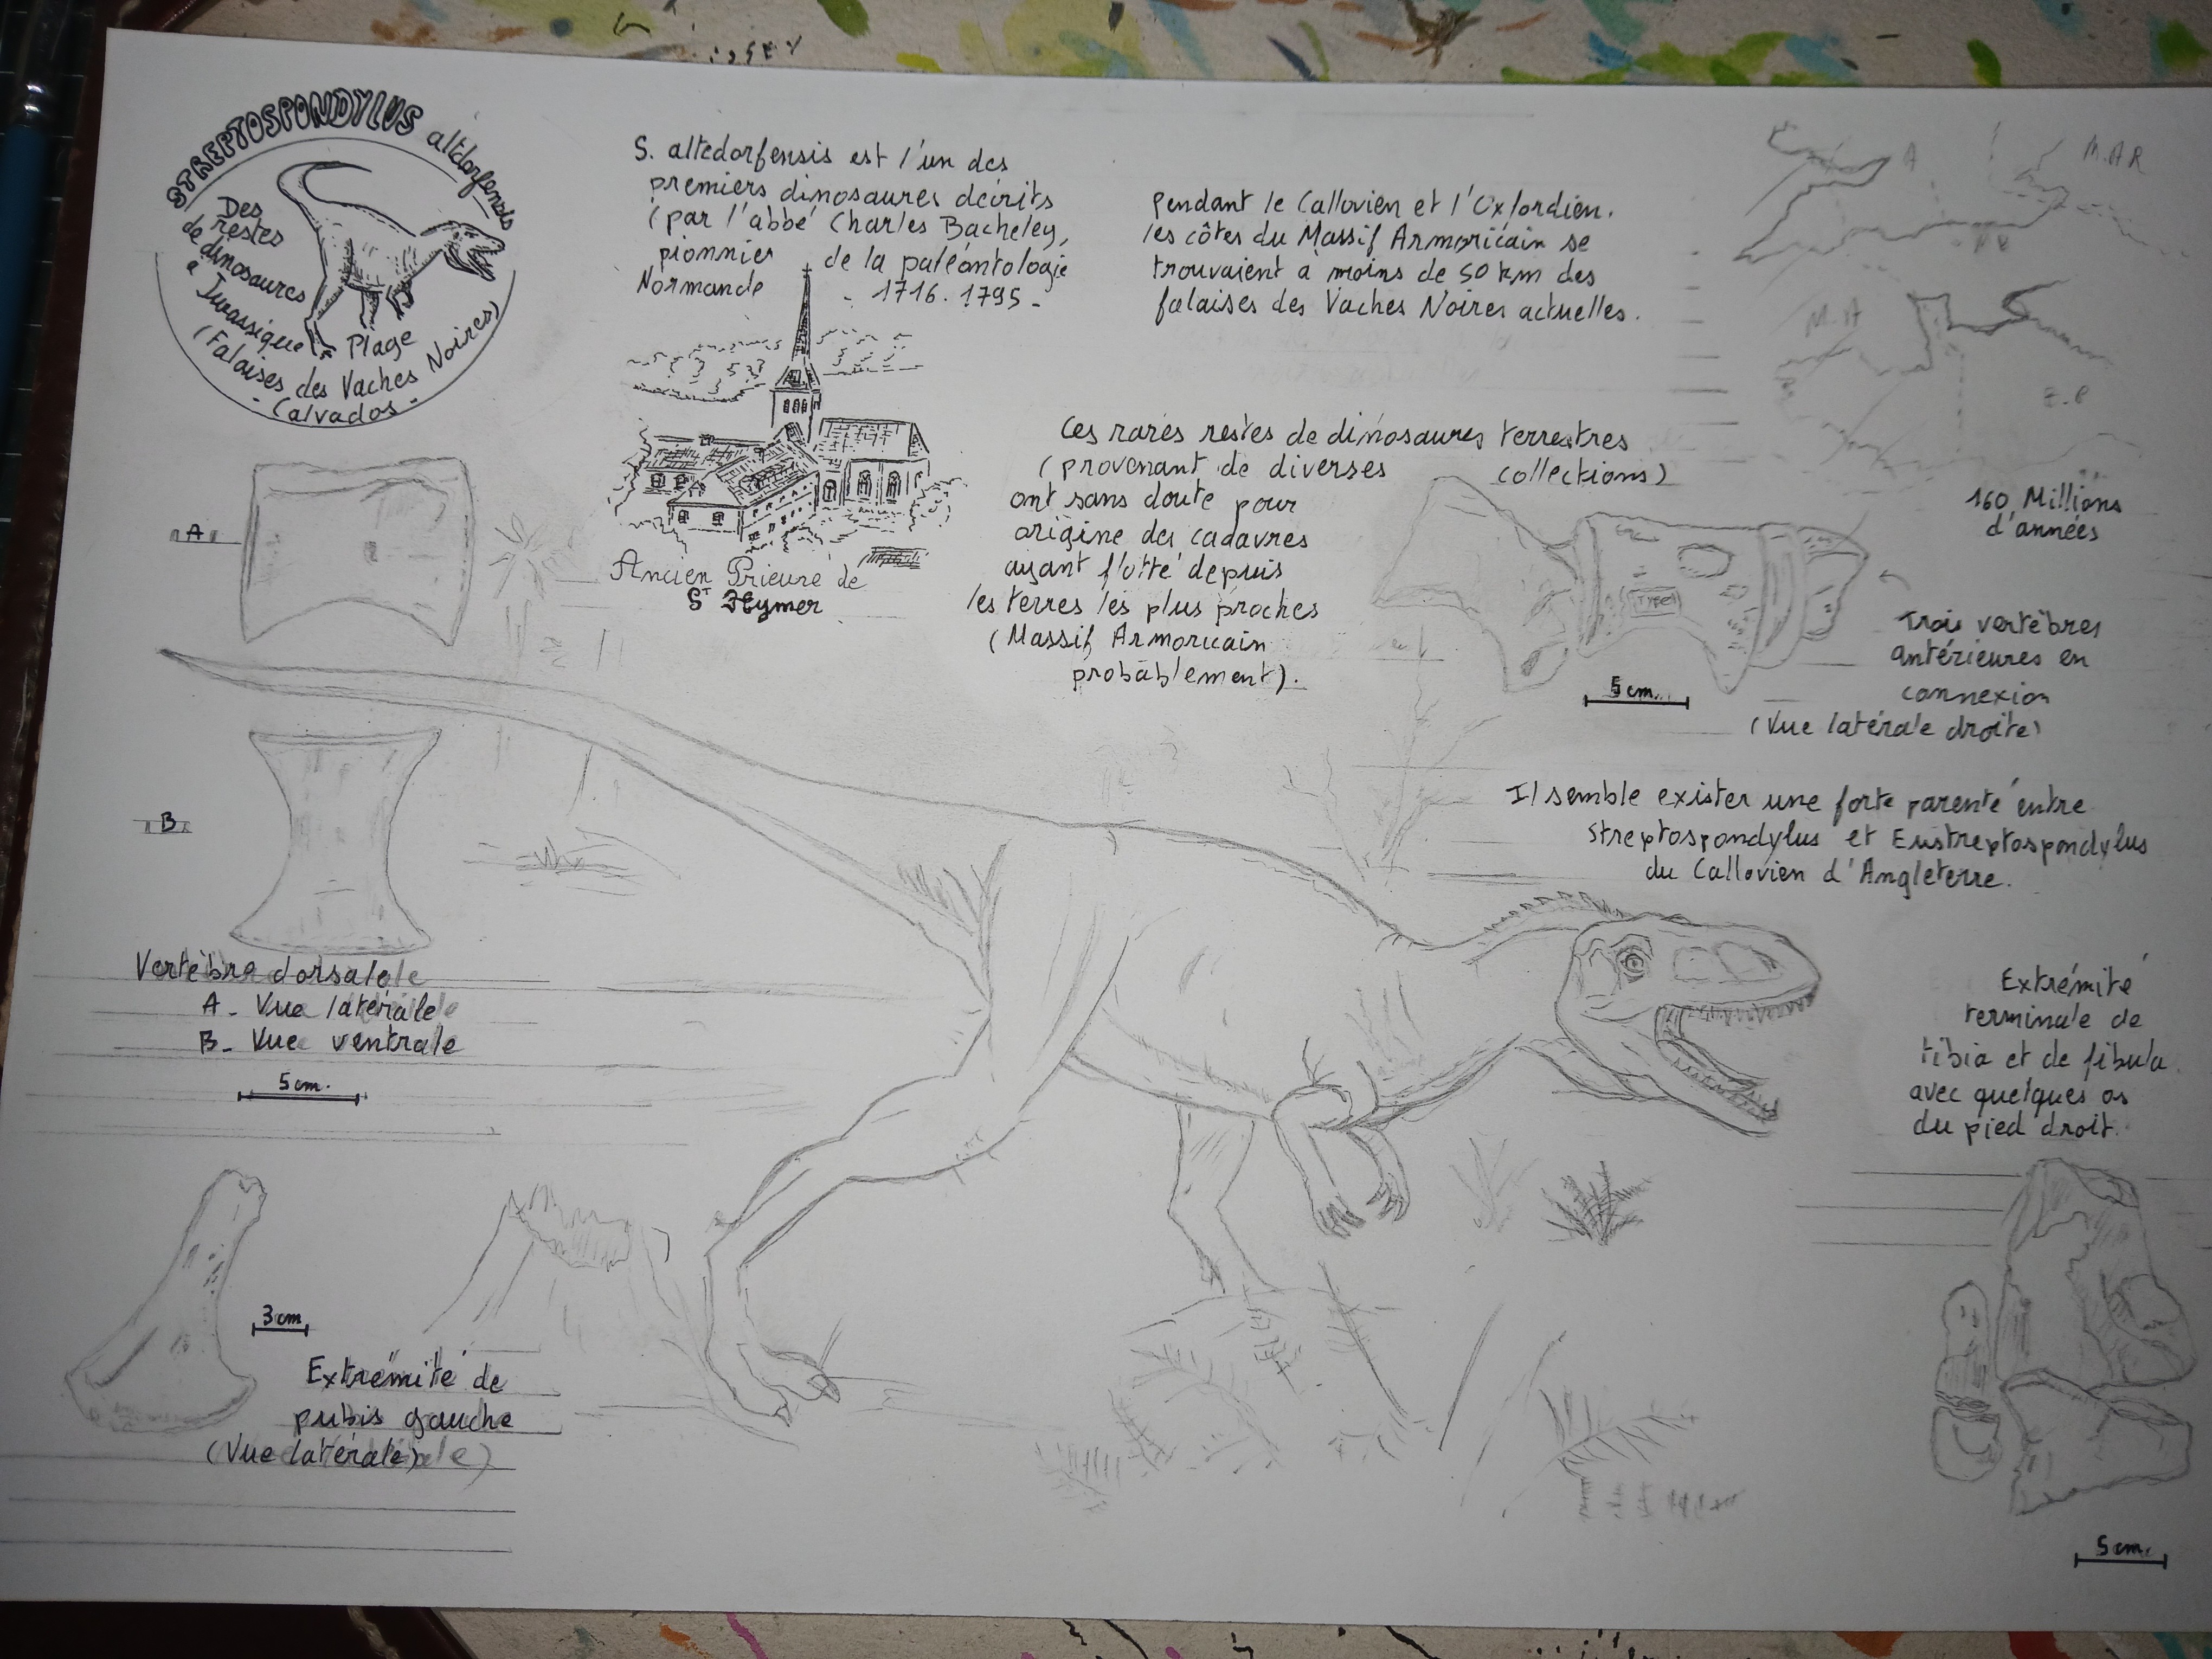 STREPTOSPONDYLUS altdorfensis
Des
restes
de dinosaures
à
Jurassique Plage
(Falaises des Vaches Noires)
- Calvados -
S. altedorfensis est l'un des
premiers dinosaures décrits
(par l'abbé Charles Bacheley,
pionnier de la paléontologie
Normande - 1716. 1795 -
Ancien Prieuré de
St Hymer
Pendant le Callovien et l'Oxfordien.
les côtes du Massif Armoricain se
trouvaient à moins de 50 km des
falaises des Vaches Noires actuelles.
Ces rares restes de dinosaures terrestres
(provenant de diverses collections)
ont sans doute pour
origine des cadavres
ayant flotté depuis
les terres les plus proches
(Massif Armoricain
probablement).
A
M.A.R
M.A
160 Millions
d'années
TYPE
5 cm.
Trois vertèbres
antérieures en
connexion
(Vue latérale droite)
Il semble exister une forte parenté entre
Streptospondylus et Eustreptospondylus
du Callovien d'Angleterre.
A
B
Vertèbre dorsale
A - Vue latérale
B - Vue ventrale
5 cm.
3 cm
Extrémité de
pubis gauche
(Vue latérale)
Extrémité
terminale de
tibia et de fibula
avec quelques os
du pied droit.
5 cm.